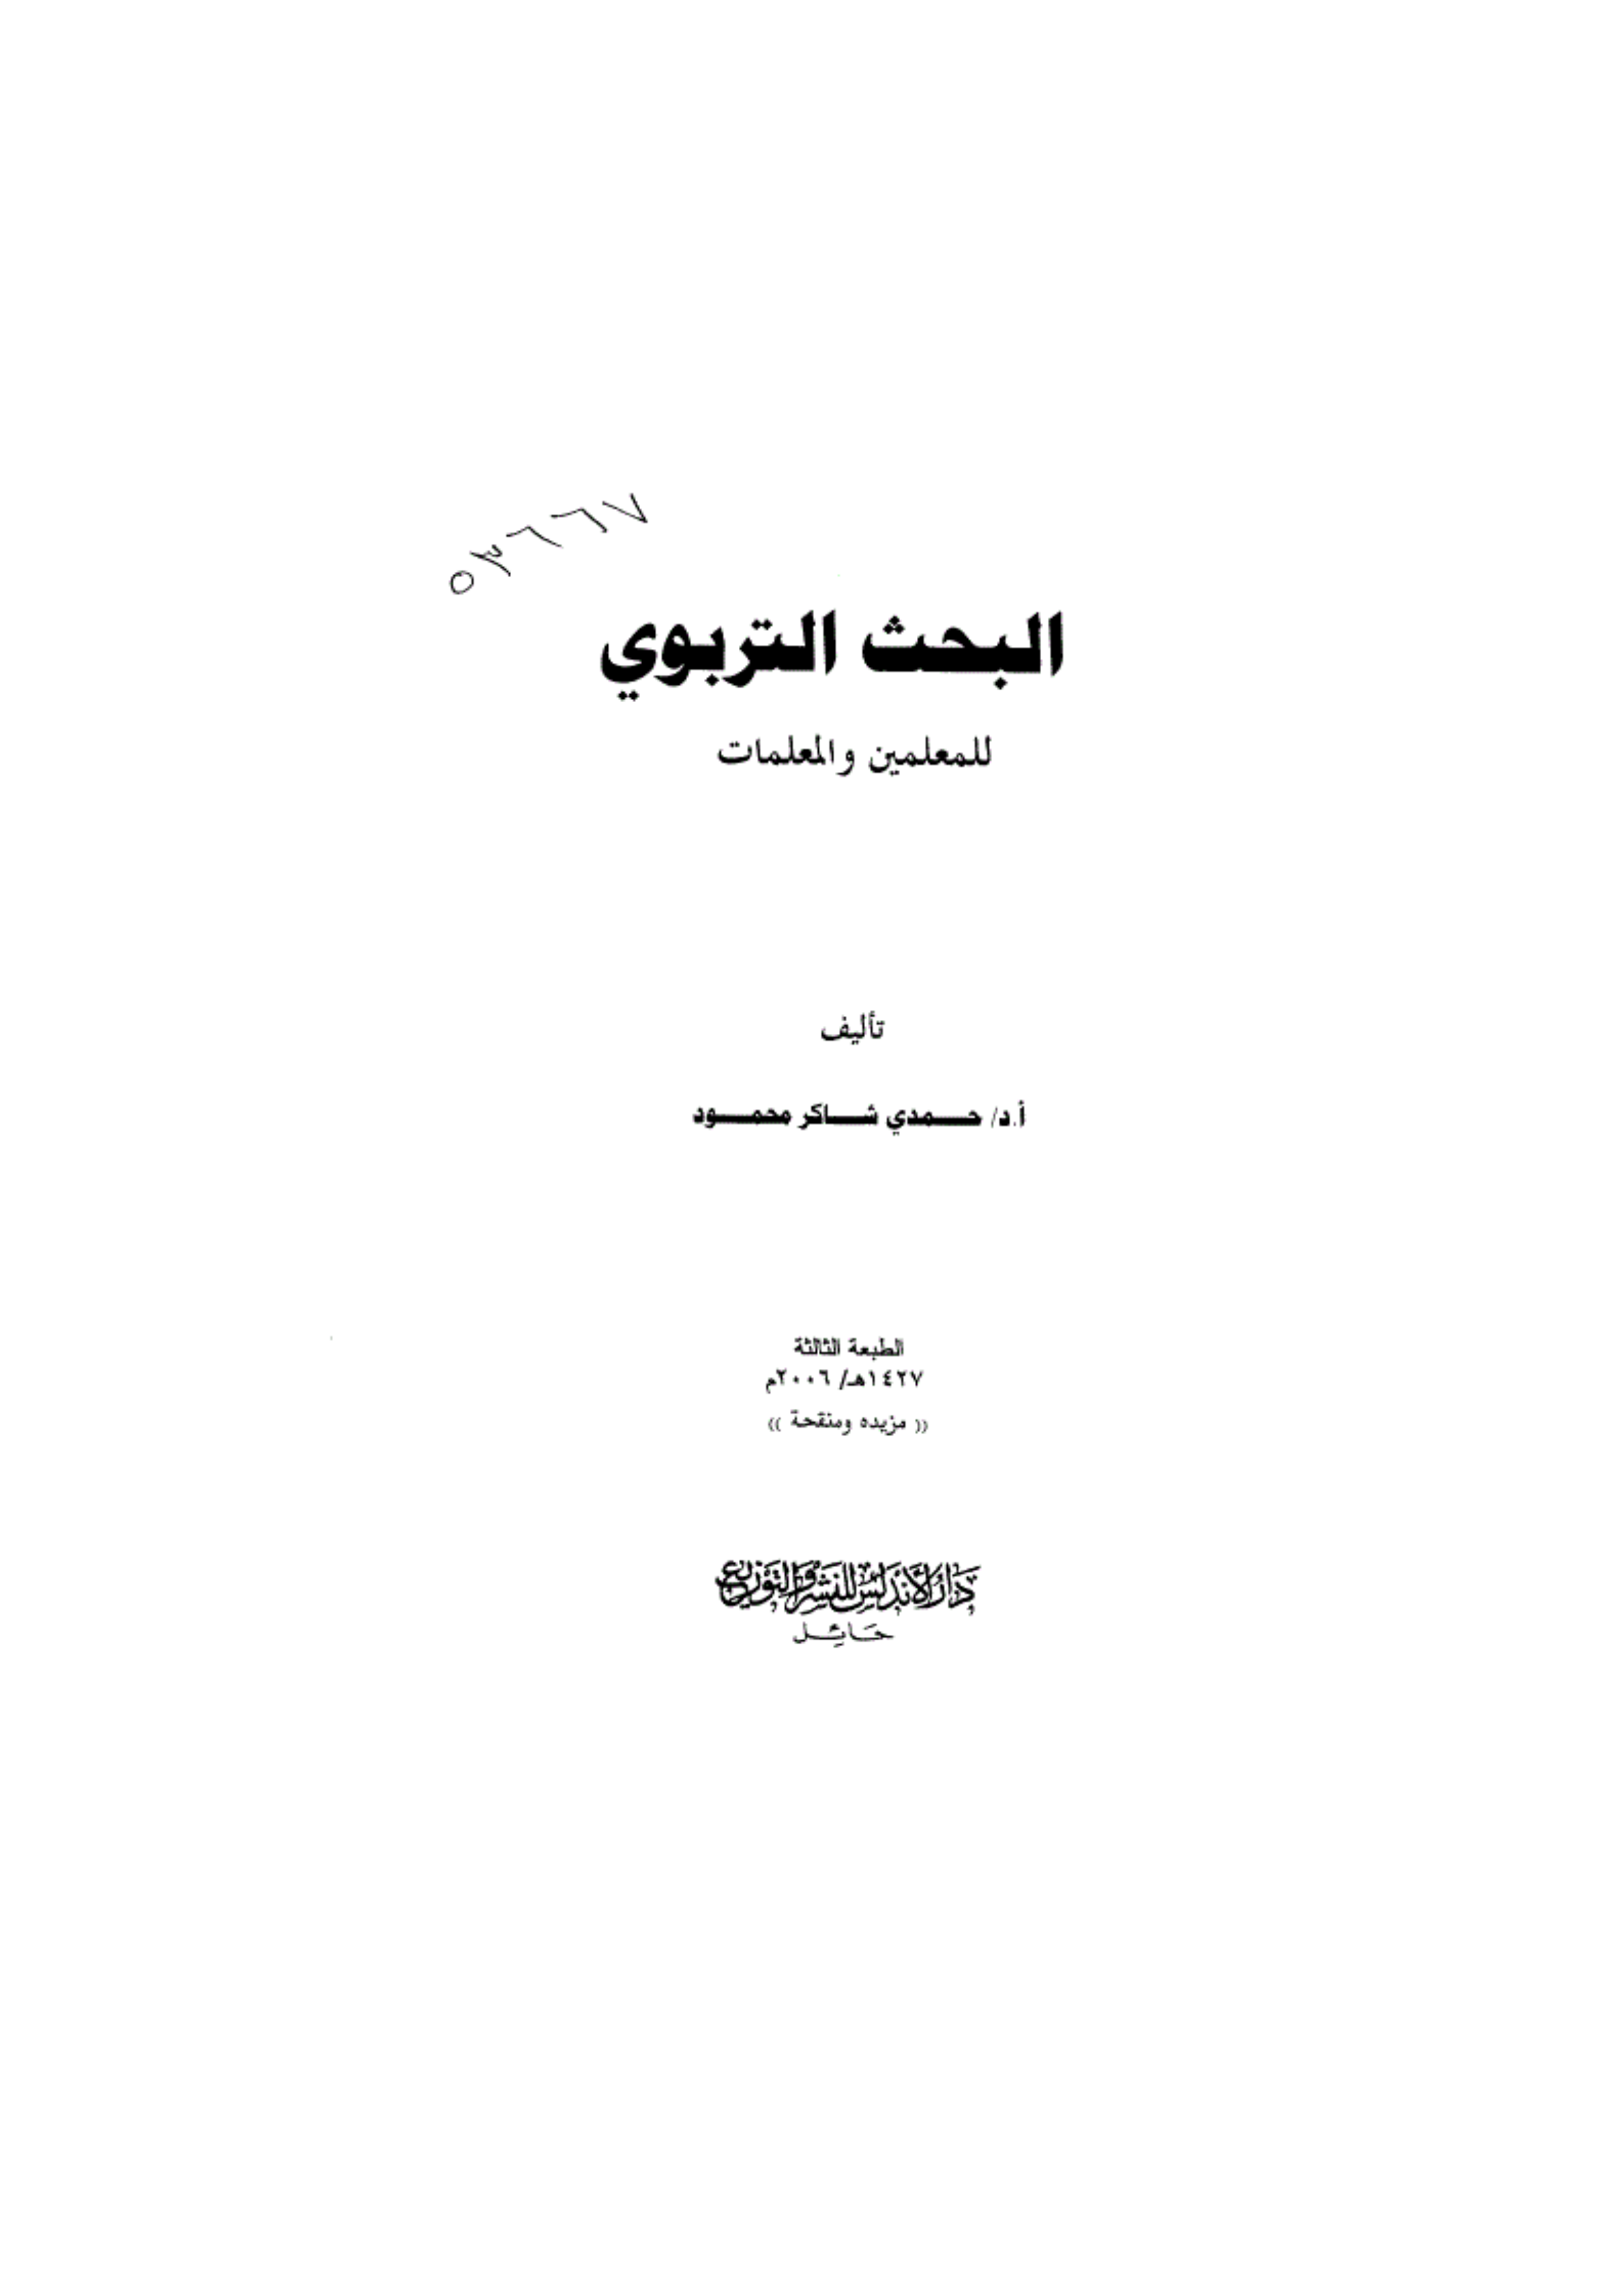 ٥٣٦٦٧
البحث التربوي
للمعلمين والمعلمات
تأليف
أ.د/ حـــمدي شـــاكر محمـــود
الطبعة الثالثة
١٤٢٧هـ/ ٢٠٠٦م
(( مزيده ومنقحة ))
دَارُ الأَنْدَلُس للنَشْر وَالتَوْزيع
حَائِل